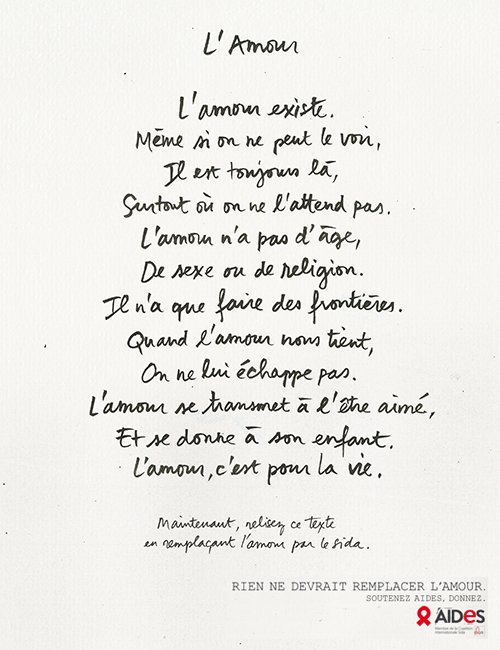 L'Amour
L'amour existe.
Même si on ne peut le voir,
Il est toujours là,
Surtout où on ne l'attend pas.
L'amour n'a pas d'âge,
De sexe ou de religion.
Il n'a que faire des frontières.
Quand l'amour nous tient,
On ne lui échappe pas.
L'amour se transmet à l'être aimé,
Et se donne à son enfant.
L'amour, c'est pour la vie.
Maintenant, relisez ce texte
en remplaçant l'amour par le sida.
RIEN NE DEVRAIT REMPLACER L'AMOUR.
SOUTENEZ AIDES, DONNEZ.
AIDES
Membre de la Coalition
Internationale Sida